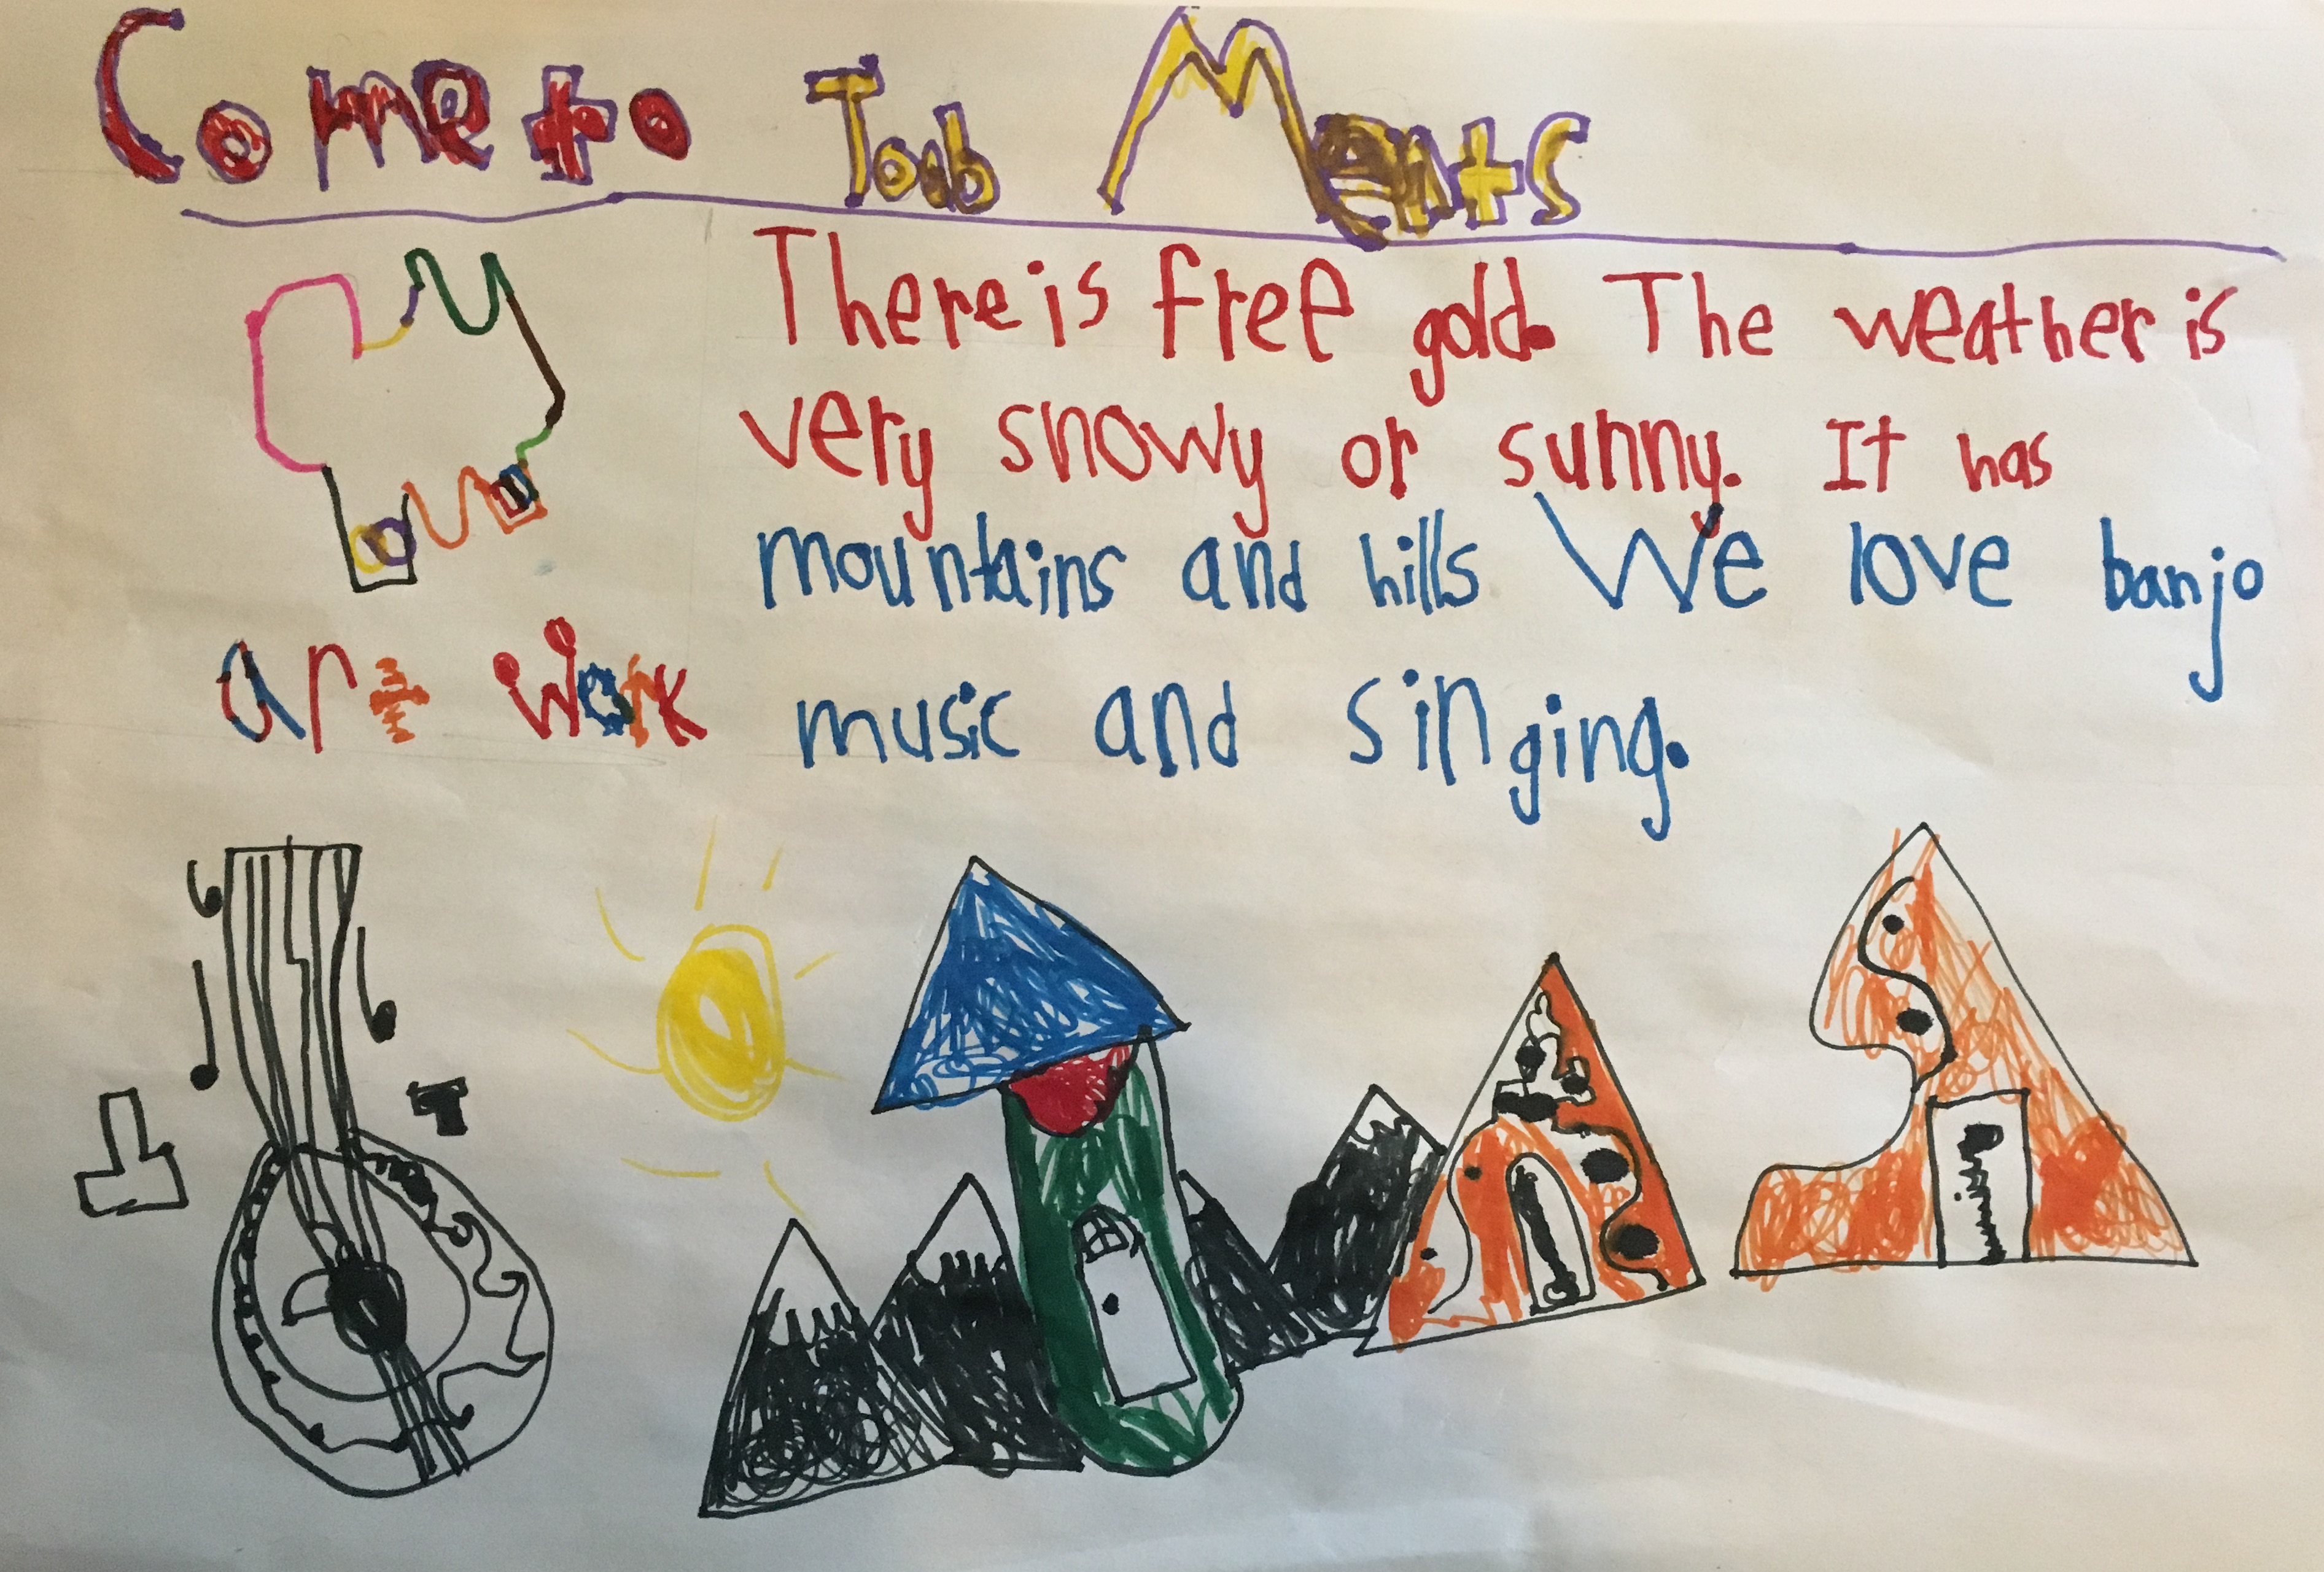 Come to Tob Ments
There is free gold. The weather is
very snowy or sunny. It has
mountains and hills We love banjo
art work
music and singing.